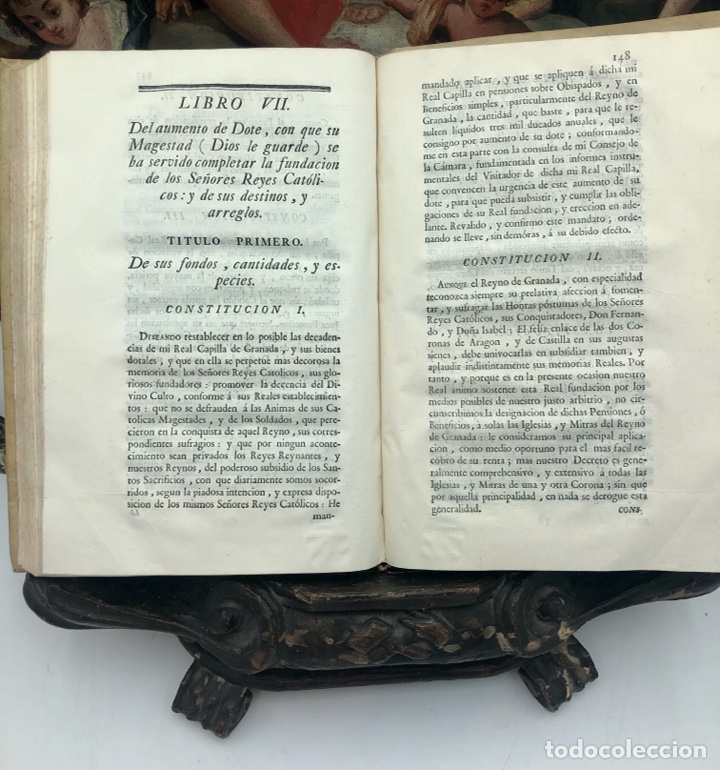 LIBRO VII.
Del aumento de Dote, con que su
Magestad ( Dios le guarde ) se
ha servido completar la fundacion
de los Señores Reyes Católi-
cos: y de sus destinos, y
arreglos.
TITULO PRIMERO.
De sus fondos, cantidades, y es-
pecies.
CONSTITUCION I.
DESEANDO restablecer en lo posible las decaden-
cias de mi Real Capilla de Granada, y sus bienes
dotales, y que en ella se perpetúe mas decorosa la
memoria de los Señores Reyes Catolicos, sus glo-
riosos fundadores: promover la decencia del Di-
vino Culto, conforme á sus Reales establecimien-
tos: que no se defrauden á las Animas de sus Ca-
tolicas Magestades, y de los Soldados, que pere-
cieron en la conquista de aquel Reyno, sus cor-
respondientes sufragios: y que por ningun aconte-
cimiento sean privados los Reyes Reynantes, y
nuestros Reynos, del poderoso subsidio de los San-
tos Sacrificios, con que diariamente somos socor-
ridos, segun la piadosa intencion, y expresa dispo-
sicion de los mismos Señores Reyes Católicos: He
man-
148
mandado aplicar, y que se apliquen á dicha mi
Real Capilla en pensiones sobre Obispados, y en
Beneficios simples, particularmente del Reyno de
Granada, la cantidad, que baste, para que le re-
sulten líquidos tres mil ducados anuales, que le
consigno por aumento de su dote; conformando-
me en esta parte con la consulta de mi Consejo de
la Cámara, fundamentada en los informes instru-
mentales del Visitador de dicha mi Real Capilla,
que convencen la urgencia de este aumento de su
dote, para que pueda subsistir, y cumplir las obli-
gaciones de su Real fundacion; y ereccion en ade-
lante. Revalido, y confirmo este mandato; orde-
nando se lleve, sin demóras, á su debido efecto.
CONSTITUCION II.
AUNQUE el Reyno de Granada, con especialidad
reconozca siempre su prelativa afeccion á fomen-
tar, y sufragar las Honras póstumas de los Señores
Reyes Católicos, sus Conquistadores, Don Fernan-
do, y Doña Isabel: El feliz enlace de las dos Co-
ronas de Aragon, y de Castilla en sus augustas
sienes, debe univocarlas en subsidiar tambien, y
aplaudir indistintamente sus memorias Reales. Por
tanto, y porque es en la presente ocasion nuestro
Real animo sostener esta Real fundacion por los
medios posibles de nuestro justo arbitrio, no cir-
cunscribimos la designacion de dichas Pensiones, ó
Beneficios, à solas las Iglesias, y Mitras del Reyno
de Granada: le consideramos su principal aplica-
cion, como medio oportuno para el mas facil re-
cobro de su renta; mas nuestro Decreto es gene-
ralmente comprehensivo, y extensivo á todas las
Iglesias, y Mitras de una y otra Corona; sin que
por aquella principalidad, en nada se derogue esta
generalidad.
CONS-
todocoleccion